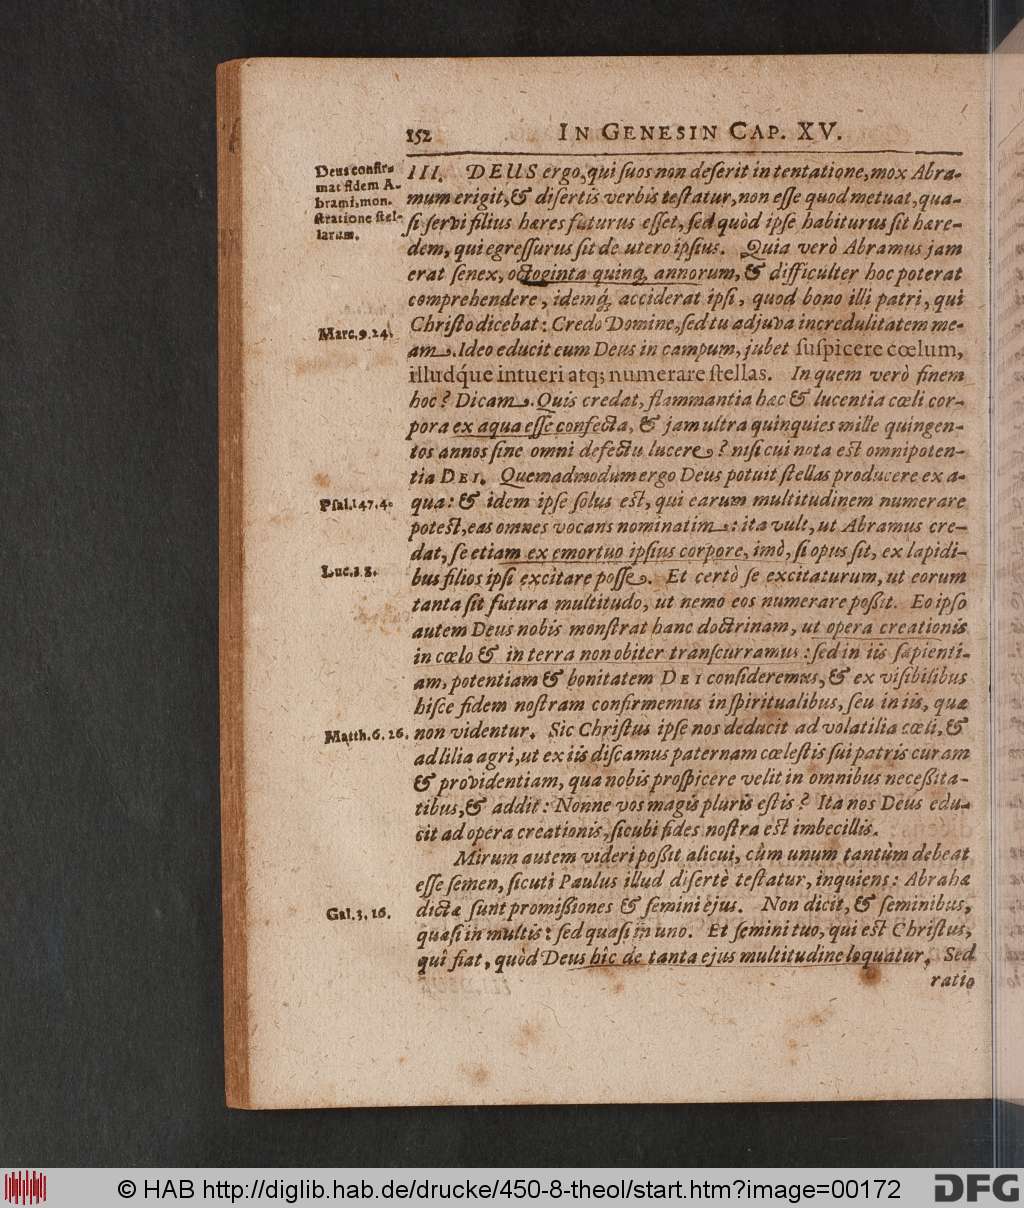 152 IN GENESIN CAP. XV.
Deus confir-
mat fidem A-
brami, mon-
stratione stel-
larum.
III. DEUS ergo, qui suos non deserit in tentatione, mox Abra-
mum erigit, & disertis verbis testatur, non esse quod metuat, qua-
si servi filius hæres futurus esset, sed quòd ipse habiturus sit hære-
dem, qui egressurus sit de utero ipsius. Quia verò Abramus jam
erat senex, octoginta quinq; annorum, & difficulter hoc poterat
comprehendere, idemq́; acciderat ipsi, quod bono illi patri, qui
Marc. 9. 24.
Christo dicebat: Credo Domine, sed tu adjuva incredulitatem me-
am. Ideo educit eum Deus in campum, jubet suspicere cœlum,
illudq́ue intueri atq; numerare stellas. In quem verò finem
hoc? Dicam. Quis credat, flammantia hæc & lucentia cœli cor-
pora ex aqua esse confecta, & jam ultra quinquies mille quingen-
tos annos sine omni defectu lucere? nisi cui nota est omnipoten-
tia DEI. Quemadmodum ergo Deus potuit stellas producere ex a-
Psal. 147. 4.
qua: & idem ipse solus est, qui earum multitudinem numerare
potest, eas omnes vocans nominatim: ita vult, ut Abramus cre-
dat, se etiam ex emortuo ipsius corpore, imò, si opus sit, ex lapidi-
Luc. 3. 8.
bus filios ipsi excitare posse. Et certò se excitaturum, ut eorum
tanta sit futura multitudo, ut nemo eos numerare possit. Eo ipso
autem Deus nobis monstrat hanc doctrinam, ut opera creationis
in cœlo & in terra non obiter transcurramus: sed in iis sapienti-
am, potentiam & bonitatem DEI consideremus, & ex visibilibus
hisce fidem nostram confirmemus in spiritualibus, seu in iis, quæ
Matth. 6. 26.
non videntur. Sic Christus ipse nos deducit ad volatilia cœli, &
ad lilia agri, ut ex iis discamus paternam cœlestis sui patris curam
& providentiam, qua nobis prospicere velit in omnibus necessita-
tibus, & addit: Nonne vos magis pluris estis? Ita nos Deus edu-
cit ad opera creationis, sicubi fides nostra est imbecillis.
Mirum autem videri possit alicui, cùm unum tantùm debeat
esse semen, sicuti Paulus illud disertè testatur, inquiens: Abrahæ
Gal. 3. 16.
dictæ sunt promissiones & semini ejus. Non dicit, & seminibus,
quasi in multis: sed quasi in uno. Et semini tuo, qui est Christus,
quî fiat, quòd Deus hîc de tanta ejus multitudine loquatur. Sed
ratio
© HAB http://diglib.hab.de/drucke/450-8-theol/start.htm?image=00172
DFG